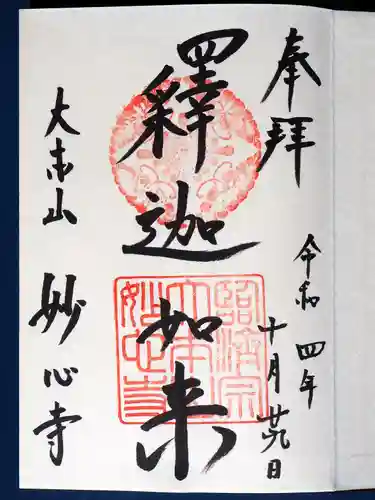 奉拝
令和四年
十月廿九日
釋迦如来
臨済宗
大本山
妙心寺
大本山 妙心寺